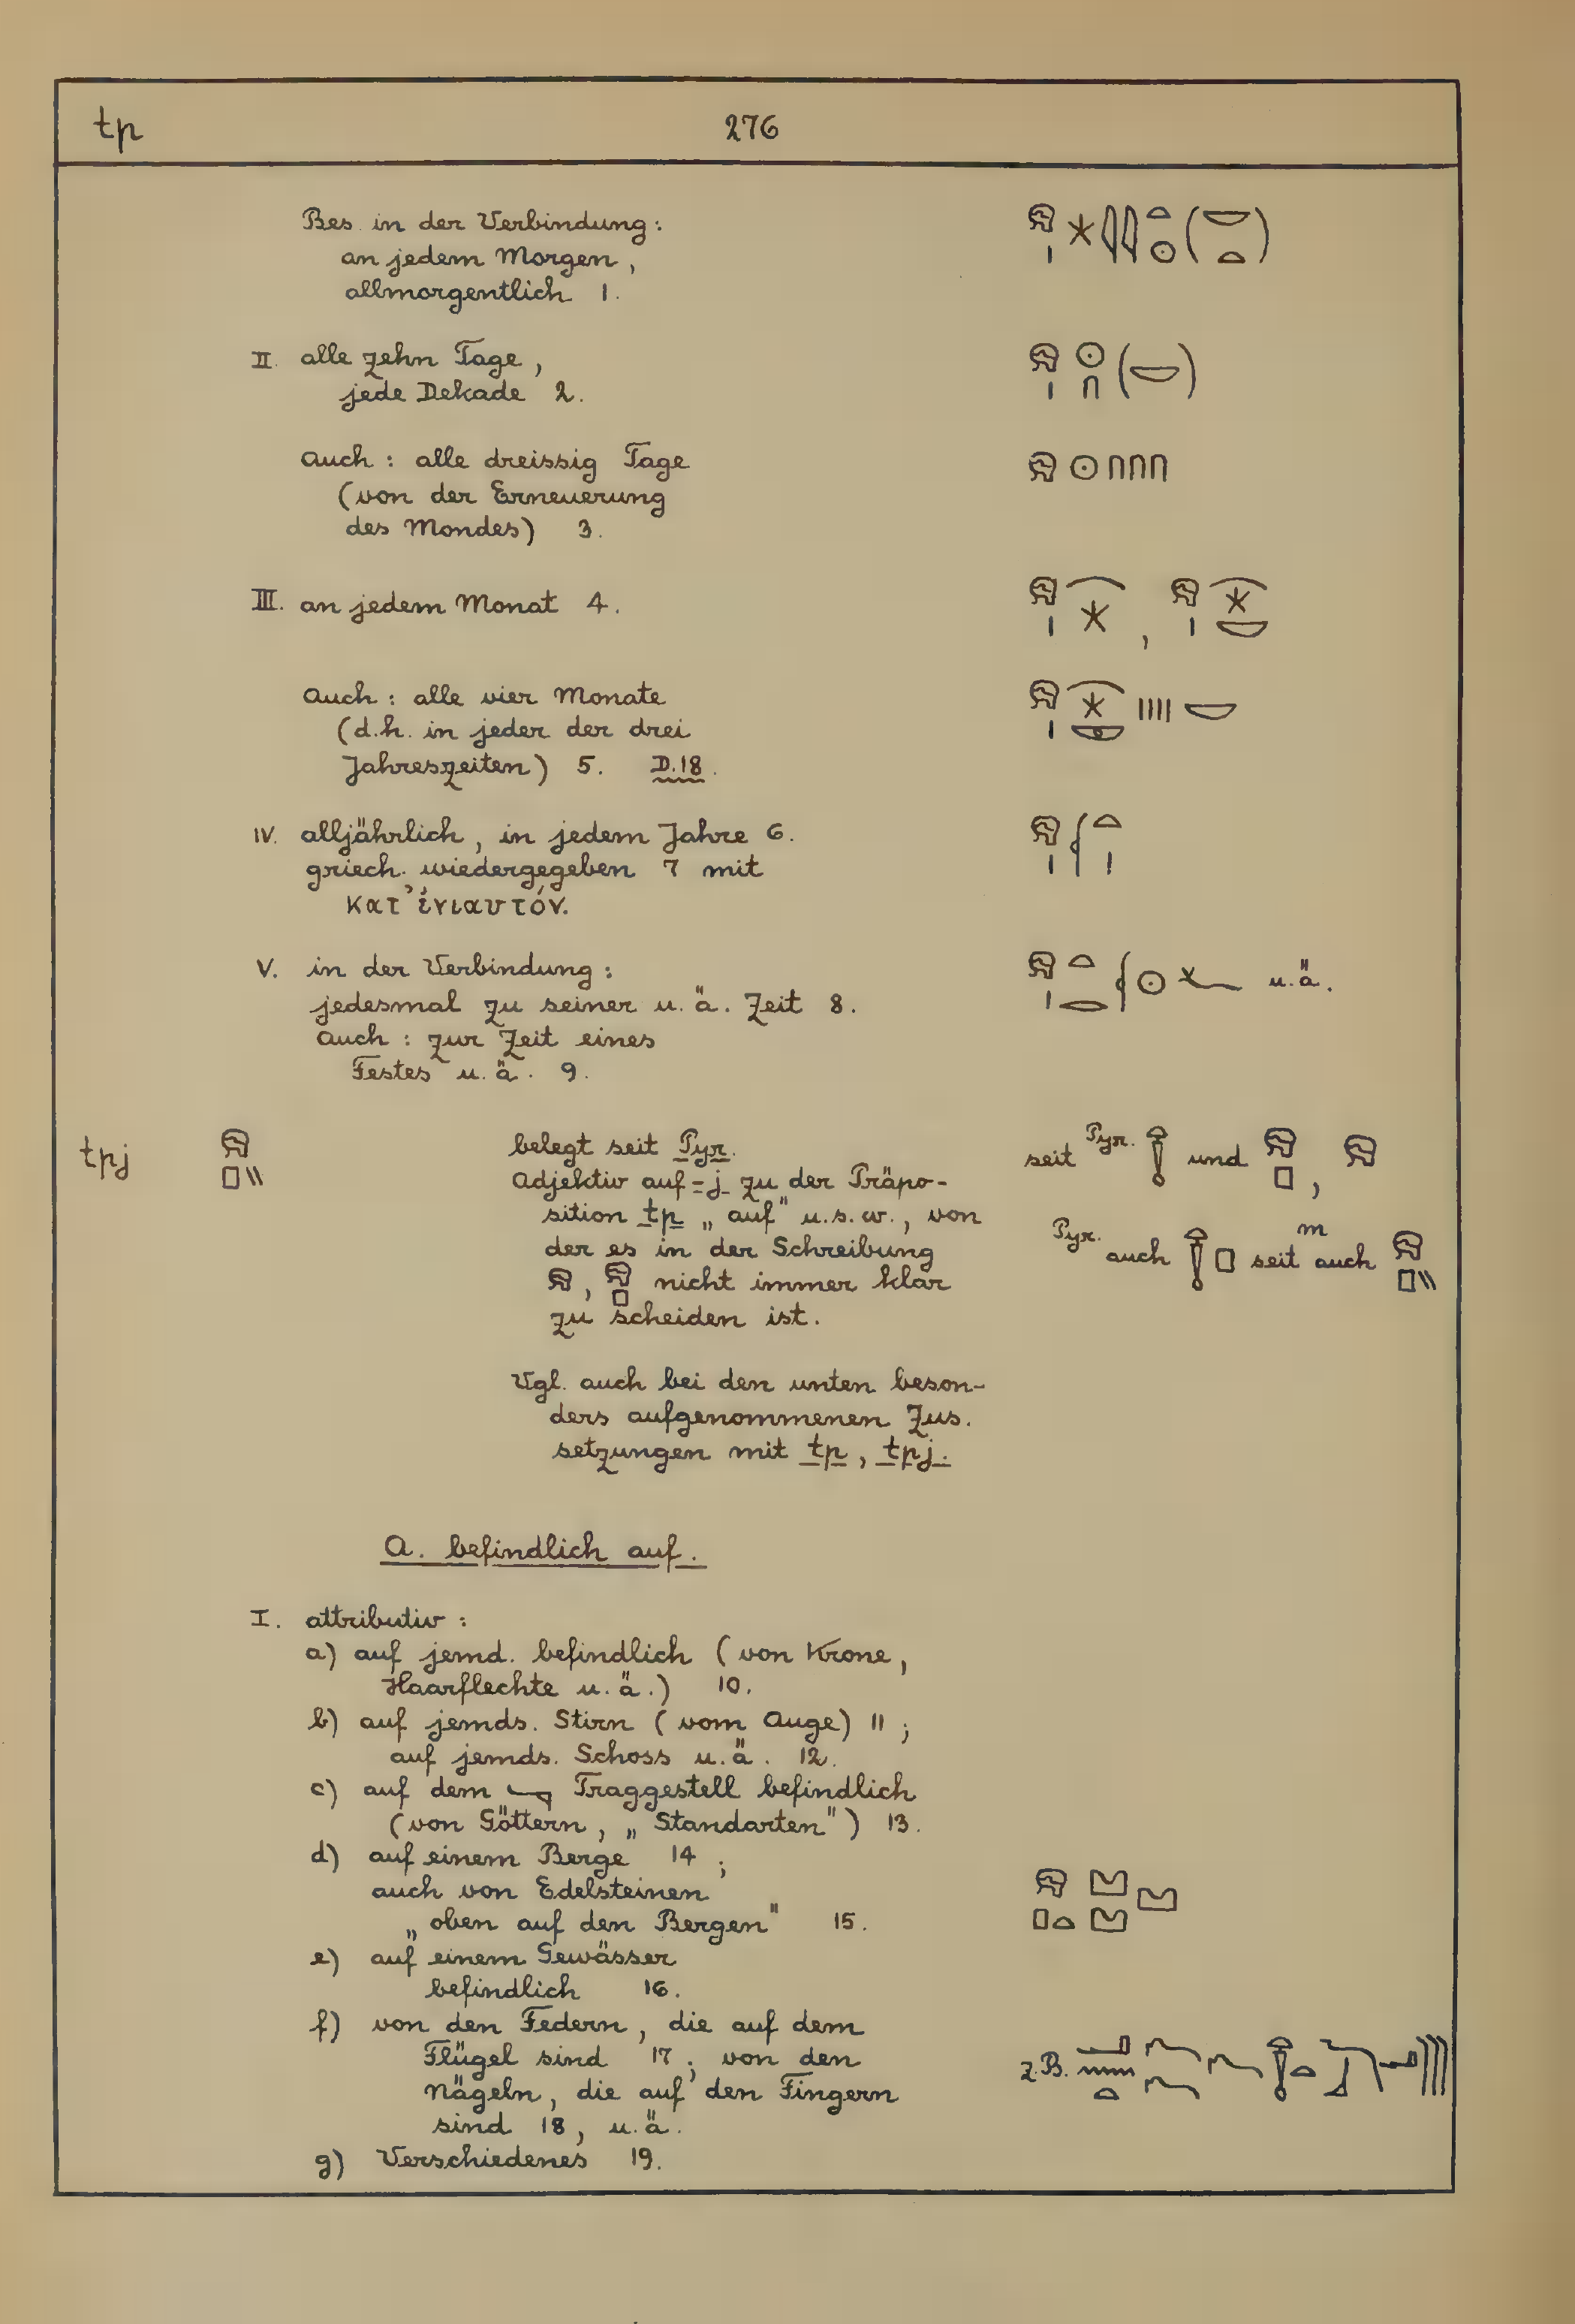 tp 276
Bes. in der Verbindung:
an jedem Morgen,
allmorgentlich 1.
II. alle zehn Tage,
jede Dekade 2.
Auch: alle dreissig Tage
(von der Erneuerung
des Mondes) 3.
III. an jedem Monat 4.
Auch: alle vier Monate
(d.h. in jeder der drei
Jahreszeiten) 5. D.18.
IV. alljährlich, in jedem Jahre 6.
griech. wiedergegeben 7 mit
κατ' ἐνιαυτόν.
V. in der Verbindung: u.ä.
jedesmal zu seiner u.ä. Zeit 8.
Auch: zur Zeit eines
Festes u.ä. 9.
tpj belegt seit Pyr. seit Pyr. und ,
Adjektiv auf =j zu der Präpo-
sition tp „auf" u.s.w., von
der es in der Schreibung Pyr. auch seit m auch
, nicht immer klar
zu scheiden ist.
Vgl. auch bei den unten beson-
ders aufgenommenen Zus.
setzungen mit tp, tpj.
A. befindlich auf.
I. attributiv:
a) auf jemd. befindlich (von Krone,
Haarflechte u.ä.) 10.
b) auf jemds. Stirn (vom Auge) 11;
auf jemds. Schoss u.ä. 12.
c) auf dem Traggestell befindlich
(von Göttern, „Standarten") 13.
d) auf einem Berge 14;
auch von Edelsteinen
„oben auf den Bergen" 15.
e) auf einem Gewässer
befindlich 16.
f) von den Federn, die auf dem
Flügel sind 17; von den z.B.
Nägeln, die auf den Fingern
sind 18, u.ä.
g) Verschiedenes 19.